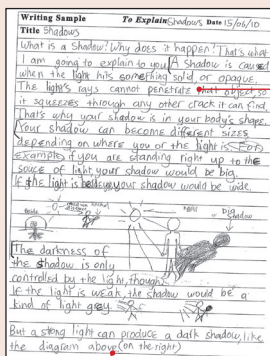 Writing Sample To Explain Shadows Date 15/06/10
Title Shadows
What is a Shadow? Why does it happen? That's what
I am going to explain to you. A Shadow is caused
when the light hits something solid, or opaque.
The light's rays cannot penetrate that object, so
it squeezes through any other crack it can find.
That's why your shadow is in your body's shape.
Your shadow can become different sizes
depending on where you or the light is. For
example, if you are standing right up to the
souce of light, your shadow would be big.
If the light is beside you, your shadow would be wide.
big
shadow
The darkness of
the shadow is only
controlled by the light, though.
If the light is weak, the shadow would be a
kind of light grey.
But a stong light can produce a dark shadow, like
the diagram above (on the right)